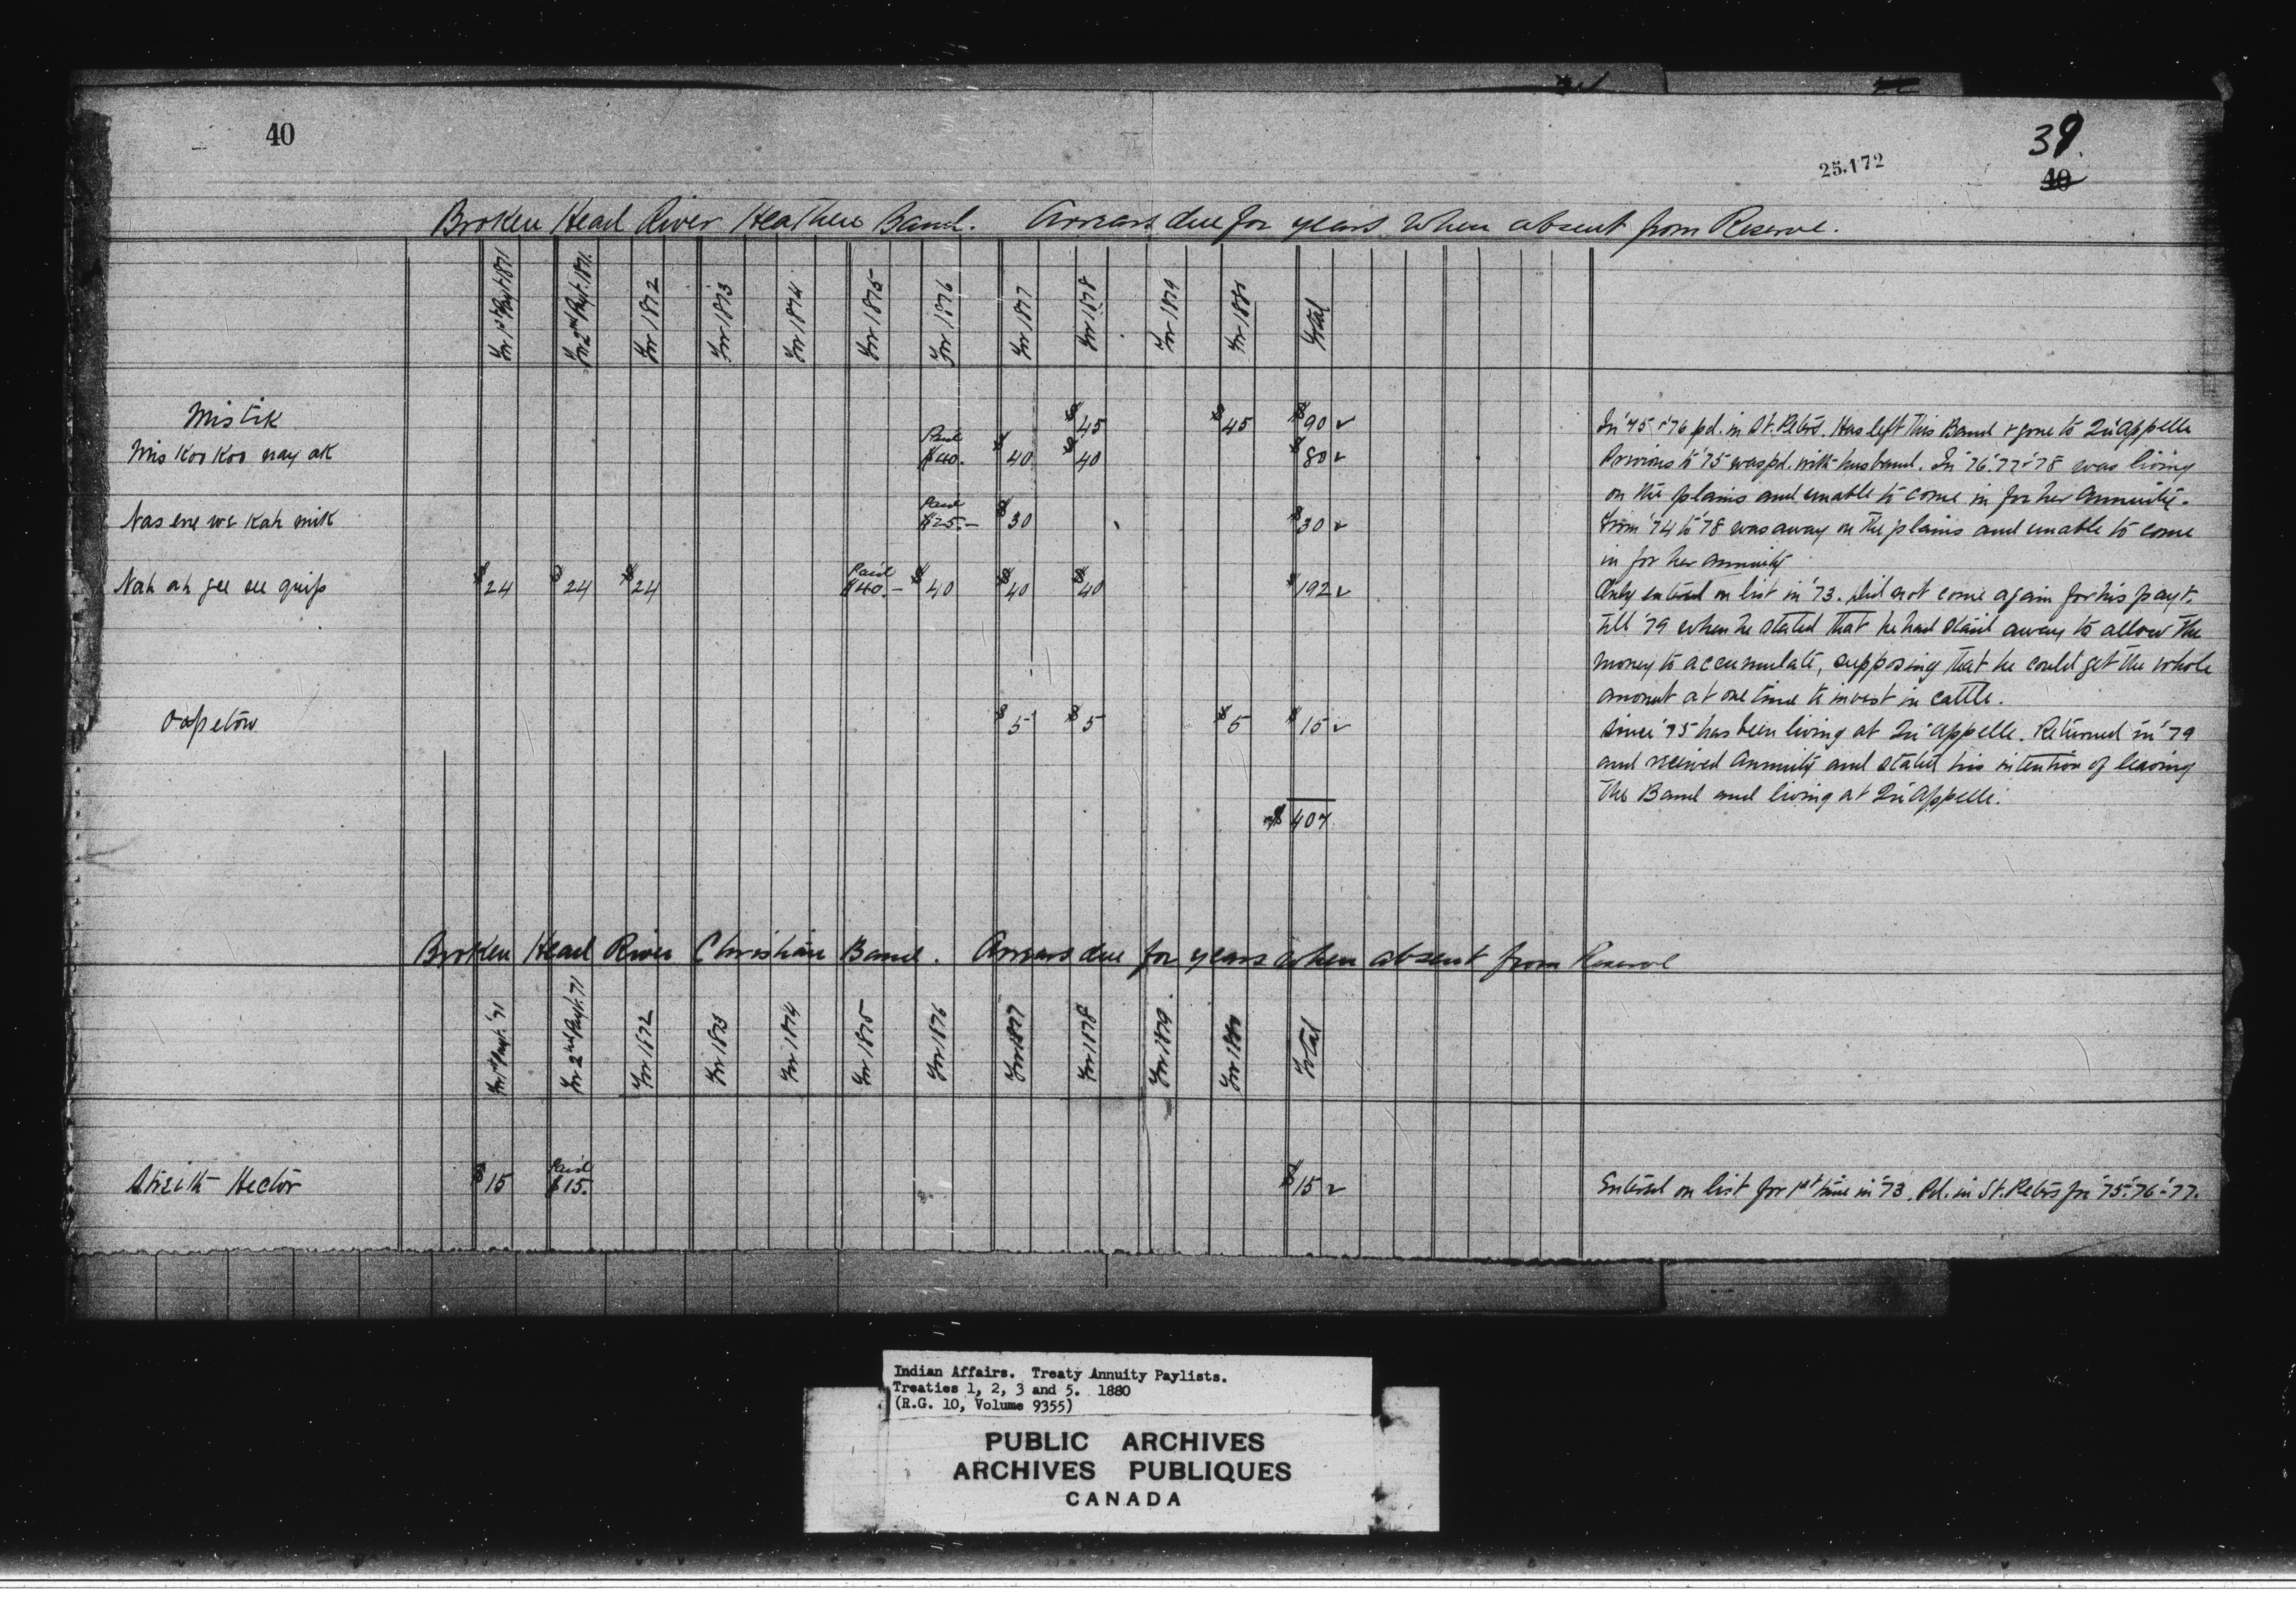 40
39.
25.172
40
Broken Head River Heathen Band. Arrears due for years when absent from Reserve.
For 1st Payt 1871 For 2nd Payt. 1871. For 1872 For 1873 For 1874 For 1875 For 1876 For 1877 For 1878 For 1879 For 1880 Total
Mistik $45 $45 $90 ✓ In '75 & '76 pd. in St. Peters. Has left this Band & gone to Qu'appelle
Mis Koo Koo nay ak Paid $40. $40 $40 $80 ✓ Previous to '75 was pd. with husband. In '76 '77 & '78 was living
on the plains and unable to come in for her annuity.
Nas ene we kah mik Paid $25.— $30 $30 ✓ From '74 to '78 was away on the plains and unable to come
in for her annuity
Nah ah gee see quip $24 $24 $24 Paid $40.— $40 $40 $40 $192 ✓ Only entered on list in '73. Did not come again for his payt.
till '79 when he stated that he had staid away to allow the
money to accumulate, supposing that he could get the whole
amount at one time to invest in cattle.
Oopetow $5 $5 $5 $15 ✓ Since '75 has been living at Qu'appelle. Returned in '79
and received Annuity and stated his intention of leaving
the Band and living at Qu'Appelle.
$407
Broken Head River Christian Band. Arrears due for years when absent from Reserve
For 1st Payt. '71 For 2nd Payt. 71 For 1872 For 1873 For 1874 For 1875 For 1876 For 1877 For 1878 For 1879. For 1880 Total
Hector $15 Paid $15. $15 ✓ Entered on list for 1st time in '73. Pd. in St. Peters for '75-'76-'77.
Indian Affairs. Treaty Annuity Paylists.
Treaties 1, 2, 3 and 5. 1880
(R.G. 10, Volume 9355)
PUBLIC ARCHIVES
ARCHIVES PUBLIQUES
CANADA